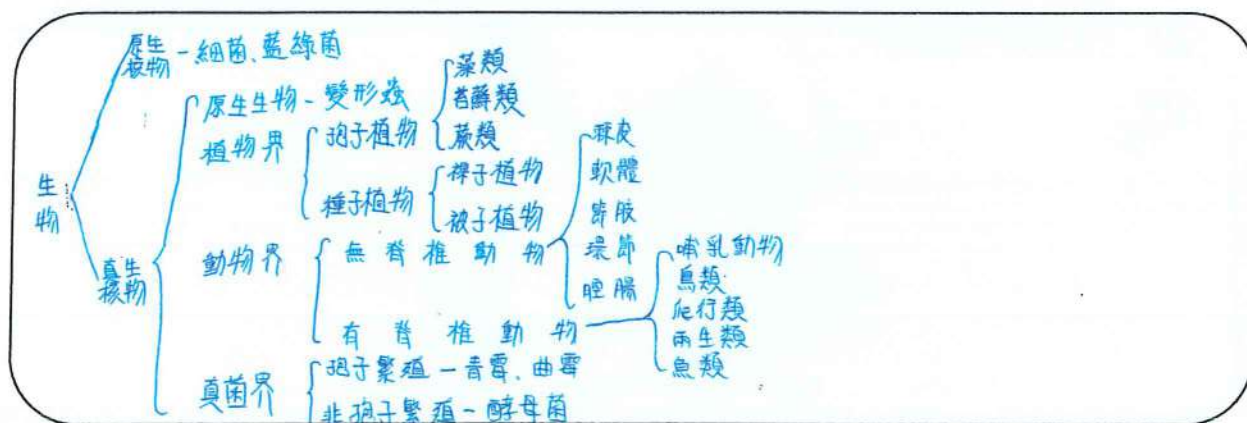 生物
原核生物 - 細菌、藍綠菌
真核生物
原生生物 - 變形蟲
植物界
孢子植物
藻類
苔蘚類
蕨類
種子植物
裸子植物
被子植物
動物界
無脊椎動物
棘皮
軟體
節肢
環節
腔腸
有脊椎動物
哺乳動物
鳥類
爬行類
兩生類
魚類
真菌界
孢子繁殖 - 青霉、曲霉
非孢子繁殖 - 酵母菌